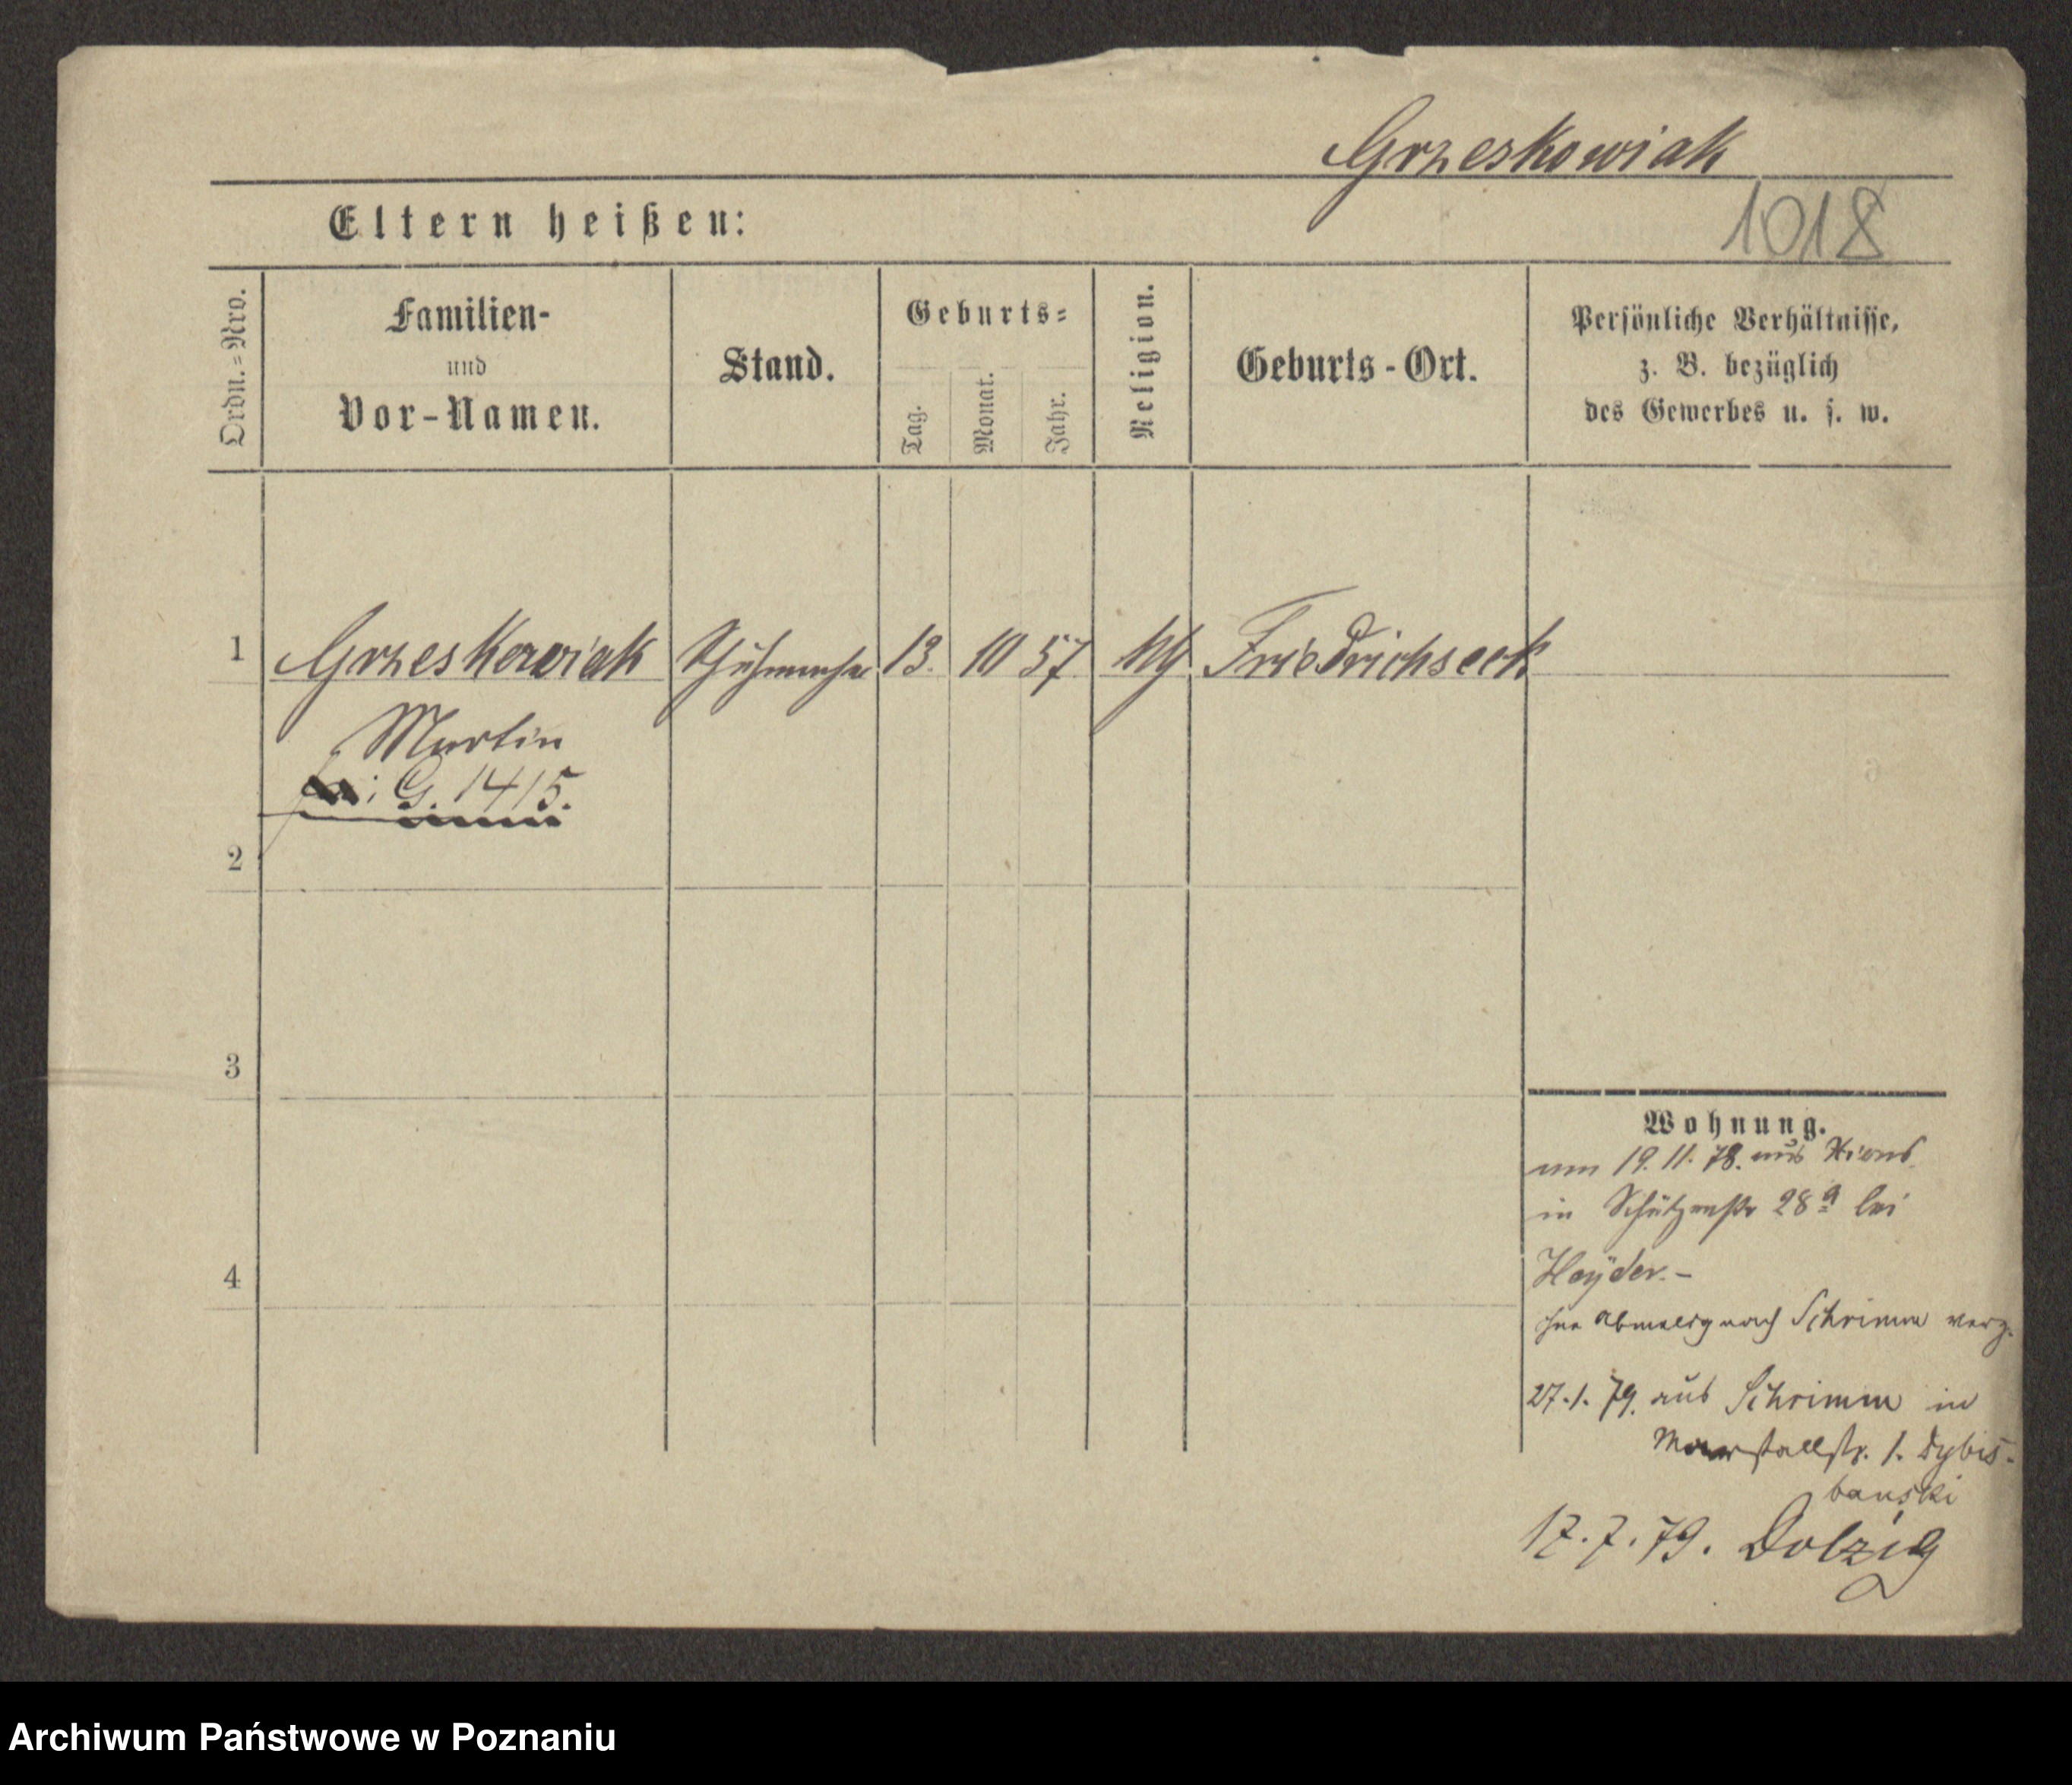 Grzeskowiak
1018
Eltern heißen:
Ordn.=Nro.
Familien-
und
Vor-Namen.
Stand.
Geburts=
Tag.
Monat.
Jahr.
Religion.
Geburts-Ort.
Persönliche Verhältnisse,
z. B. bezüglich
des Gewerbes u. s. w.
1 Grzeskowiak Schuhmacher 13. 10 57 Friedrichseck
Martin
G. 1415.
2
3
4
Wohnung.
am 19. 11. 78. aus Xions
in Schützenstr 28a bei
Heÿder.-
ohne Abmeldg nach Schrimm verz.
27.1.79. aus Schrimm in
Marstallstr. 1. Dybis-
banski
17.7.79. Dolzig
Archiwum Państwowe w Poznaniu